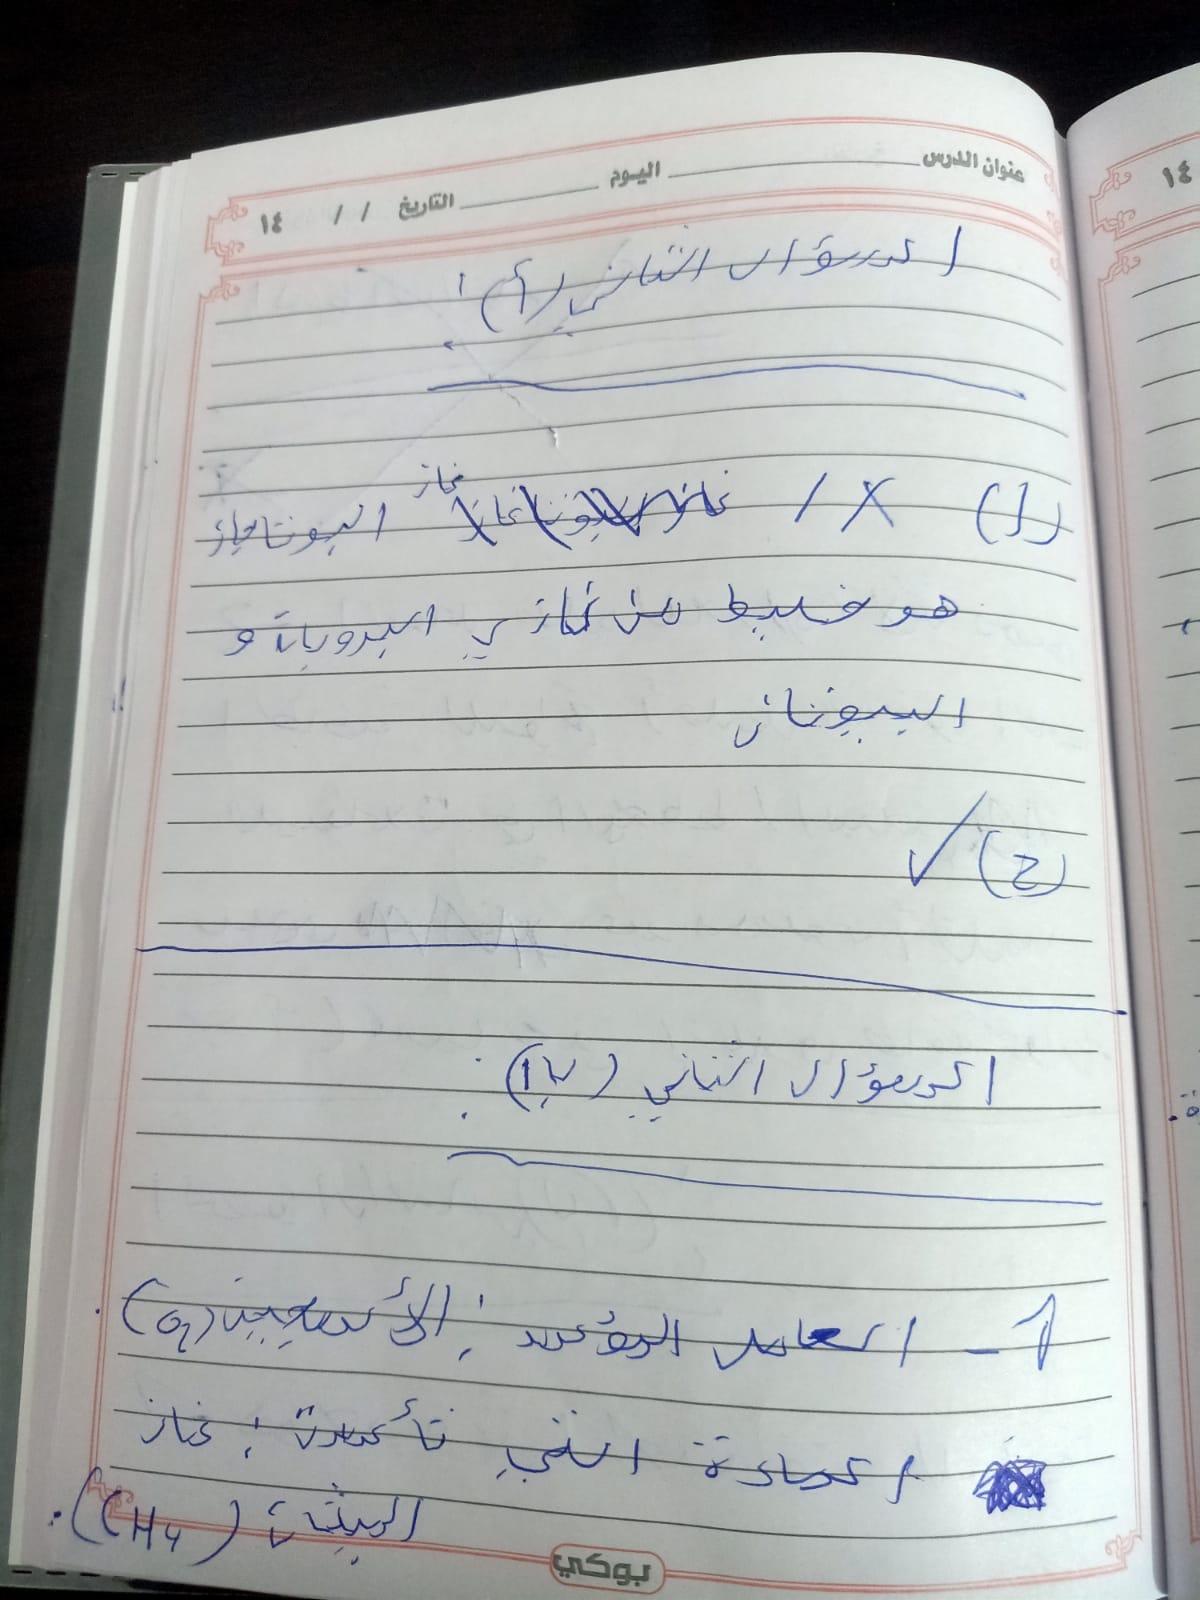 عنوان الدرس اليوم التاريخ / / ١٤
السؤال الثاني (أ) :
(1) X / غاز البوتاجاز
هو خليط من غازي البروبان و
البيوتان
(2) ✓
السؤال الثاني (ب) :
1 - العامل المؤكسد : الأكسجين (O2) .
المادة التي تأكسدت : غاز
الميثان (CH4) .
بوكي
١٤